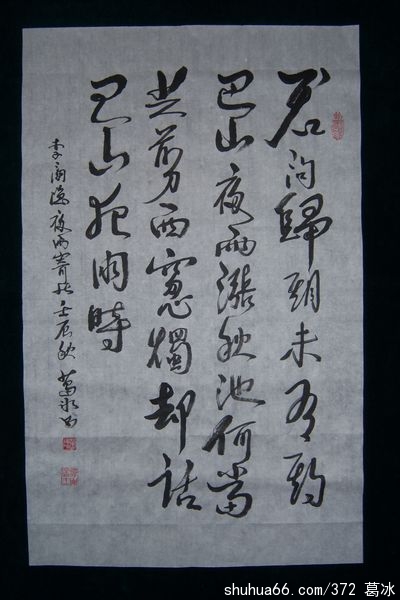 君問歸期未有期
巴山夜雨漲秋池何當
共剪西窗燭却話
巴山夜雨時
李商隱夜雨寄北壬辰秋葛冰書
shuhua66.com/372 葛冰